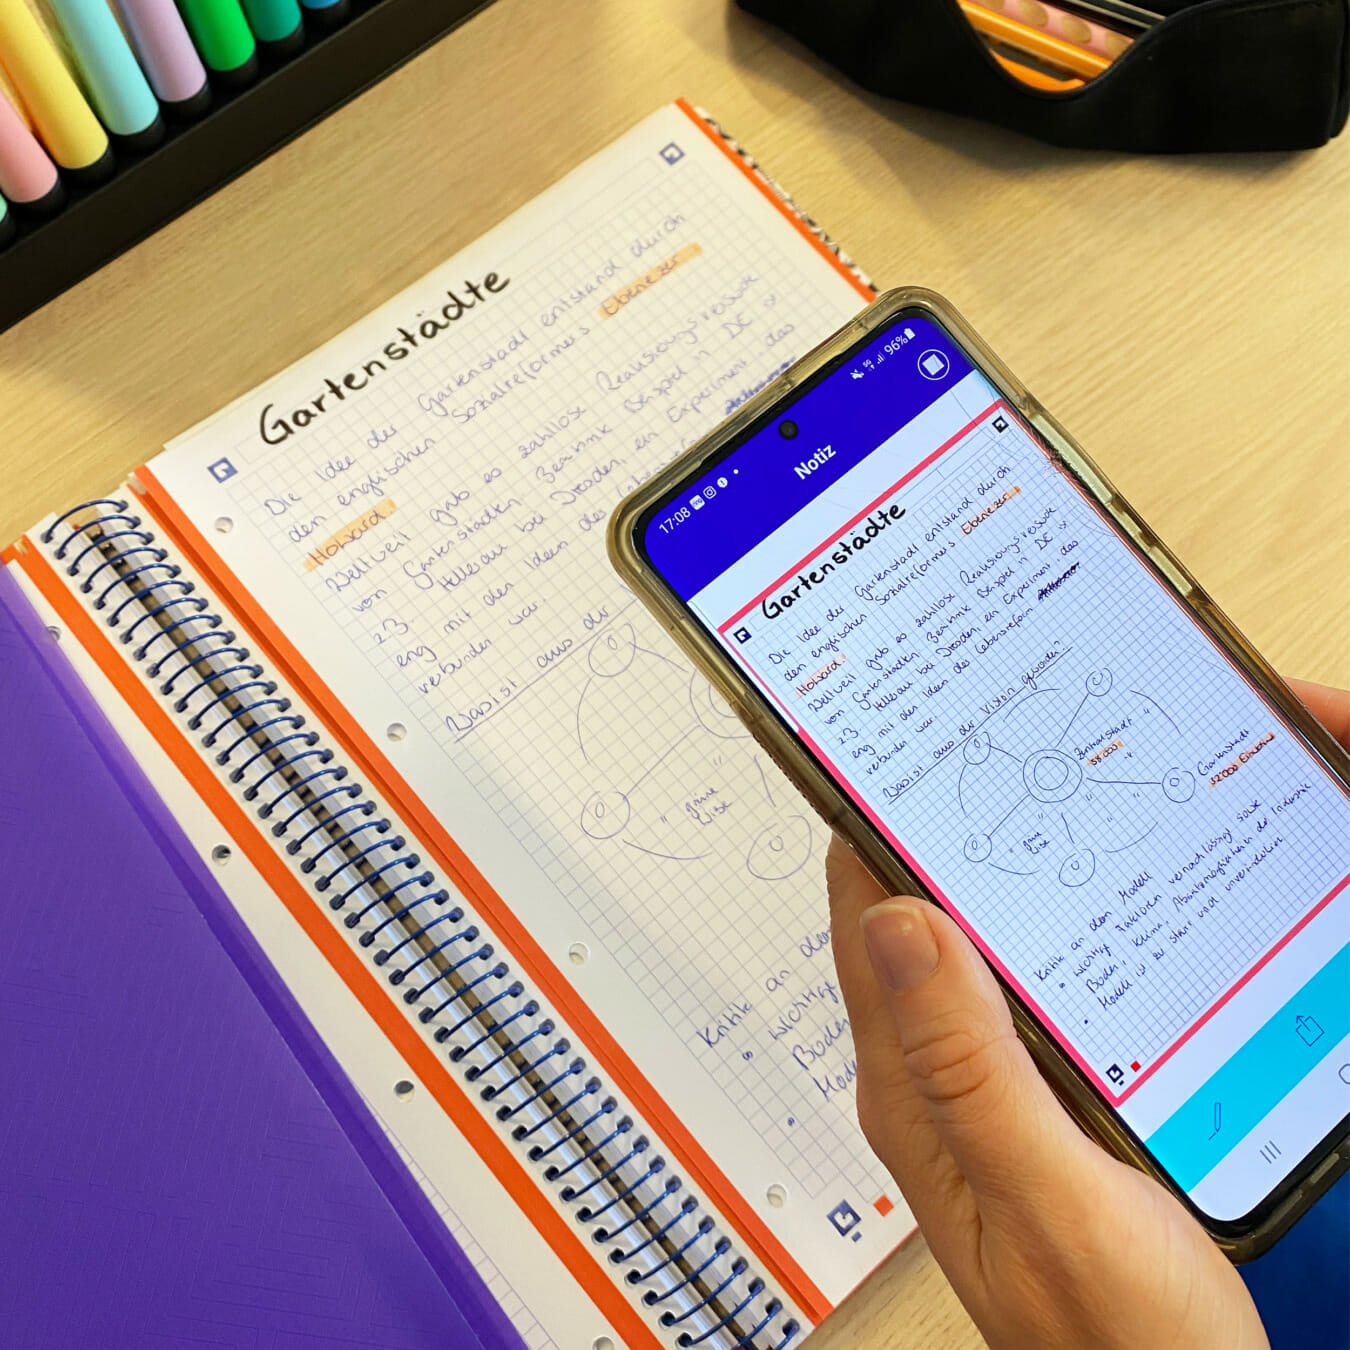 Gartenstädte
Die Idee der Gartenstadt entstand durch
den englischen Sozialreformers Ebenezer
Howard.
Weltweit gab es zahllose
von Gartenstädten. Beispiel in DE
z.B. Hellerau bei Dresden, ein Experiment, das
eng mit den Ideen der
verbunden war.
Was ist aus der
" grüne
Wiese
Kritik an dem
wichtige
Boden
Mode
17:08
96%
Notiz
Gartenstädte
Die Idee der Gartenstadt entstand durch
den englischen Sozialreformers Ebenezer
Howard.
Weltweit gab es zahllose
von Gartenstädten. Beispiel in DE
z.B. Hellerau bei Dresden, ein Experiment, das
eng mit den Ideen der Lebensreform
verbunden war.
Was ist aus der Vision geworden?
Zentralstadt
58 000
Gartenstadt
32 000 Einwohner
" grüne
Wiese
Kritik an dem Modell
• wichtige Faktoren vernachlässigt sowie
Boden, Klima, in der Industrie
• Modell ist zu starr und unveränderbar